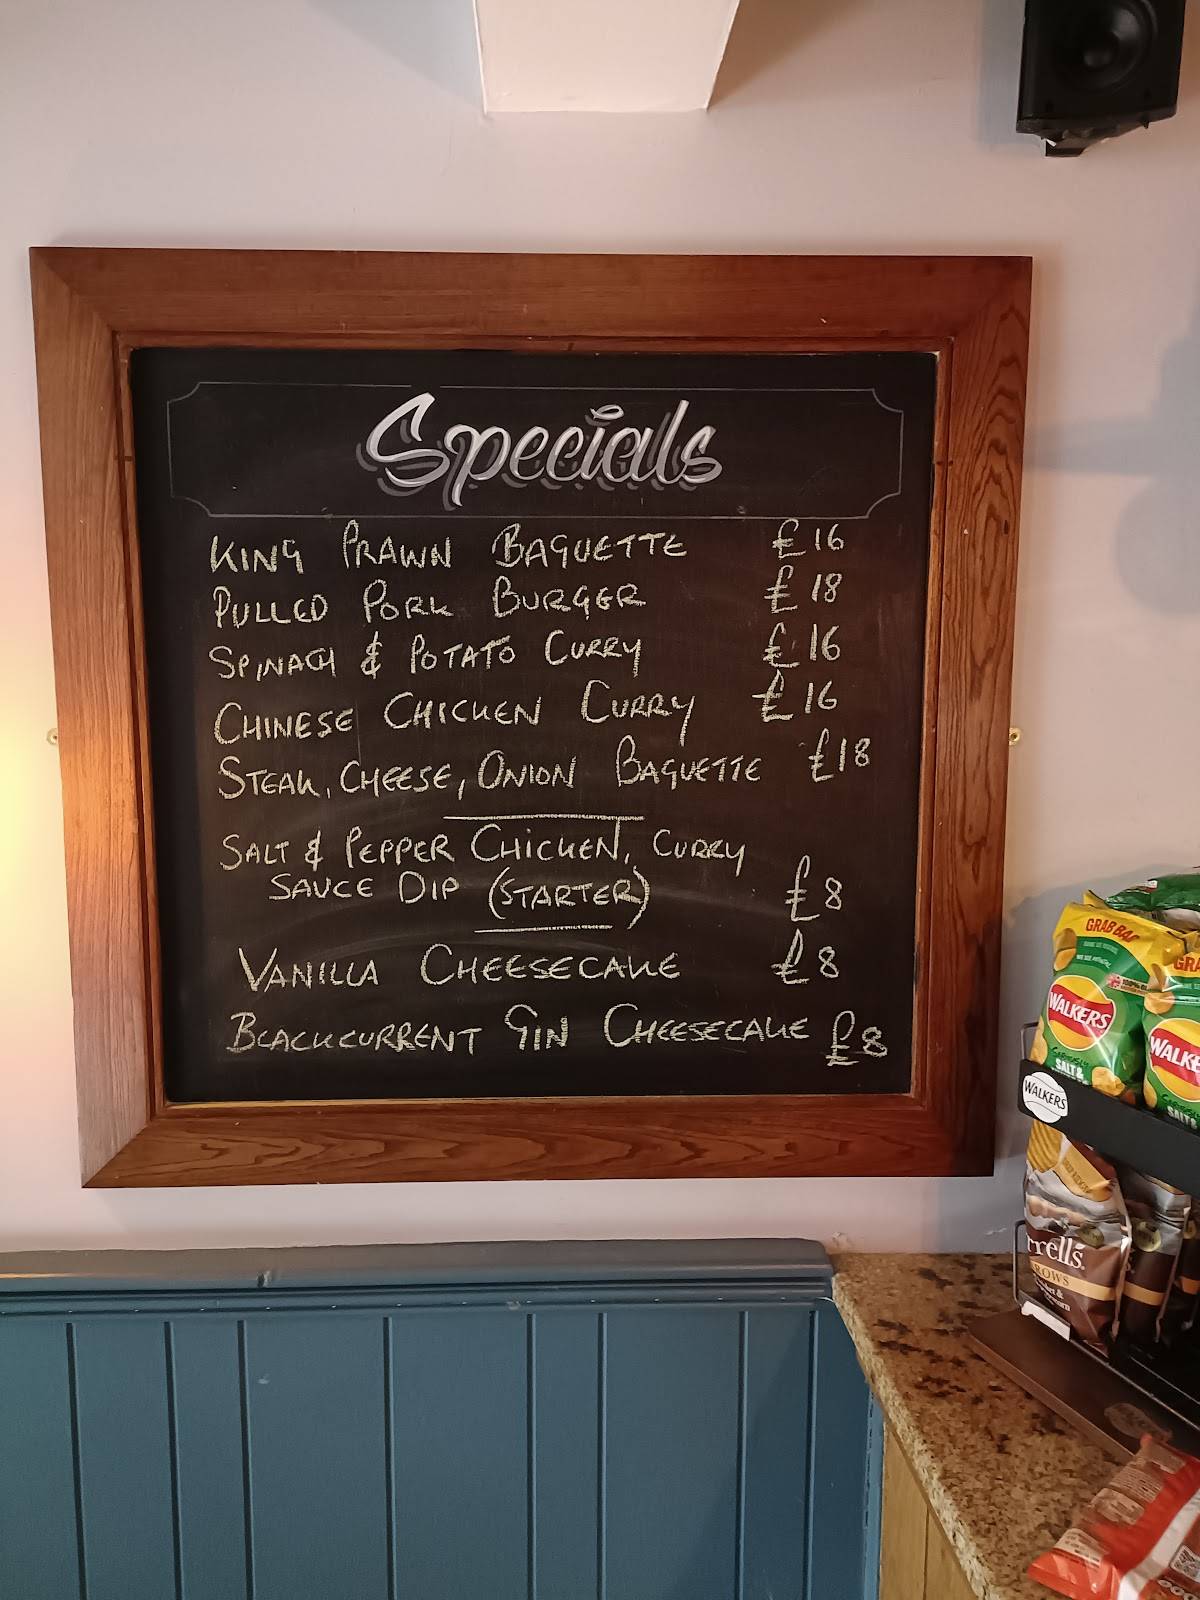 Specials
KING PRAWN BAGUETTE £16
PULLED PORK BURGER £18
SPINACH & POTATO CURRY £16
CHINESE CHICKEN CURRY £16
STEAK, CHEESE, ONION BAGUETTE £18
SALT & PEPPER CHICKEN, CURRY
SAUCE DIP (STARTER) £8
VANILLA CHEESECAKE £8
BLACKCURRENT GIN CHEESECAKE £8
GRAB BAG
WALKERS
SALT &
GRA
WALKE
SALT &
WALKERS
rrells
ROWS